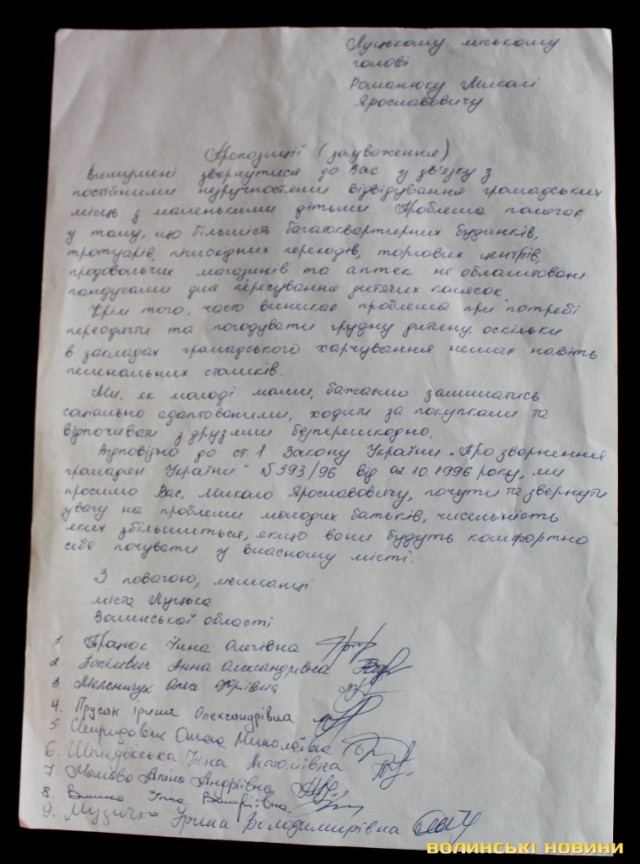 Луцькому міському
голові
Романюку Миколі
Ярославовичу
Пропозиції (зауваження)
Вимушені звернутися до Вас у зв'язку з
постійними незручностями відвідування громадських
місць з маленькими дітьми. Проблема полягає
у тому, що більшість багатоквартирних будинків,
тротуарів, пішохідних переходів, торгових центрів,
продовольчих магазинів та аптек не облаштовані
пандусами для пересування дитячих колясок.
Крім того, часто виникає проблема при потребі
переодягти та погодувати грудну дитину, оскільки
в закладах громадського харчування немає навіть
пеленальних столиків.
Ми, як молоді мами, бажаємо залишатись
соціально адаптованими, ходити за покупками та
відпочивати з друзями безперешкодно.
Відповідно до ст. 1 Закону України „Про звернення
громадян України" №393/96 від 02.10.1996 року, ми
просимо Вас, Микола Ярославовичу, почути та звернути
увагу на проблеми молодих батьків, чисельність
яких збільшиться, якщо вони будуть комфортно
себе почувати у власному місті.
З повагою, мешканці
міста Луцька
Волинської області
1. Інна Олегівна
2. Анна Олександрівна
3. Мельничук Юріївна
4. Прусак Ірина Олександрівна
5. Миколаївна
6. Інна
7. Аліна Андріївна
8. Інна
9. Музичко Ірина Володимирівна
ВОЛИНСЬКІ НОВИНИ